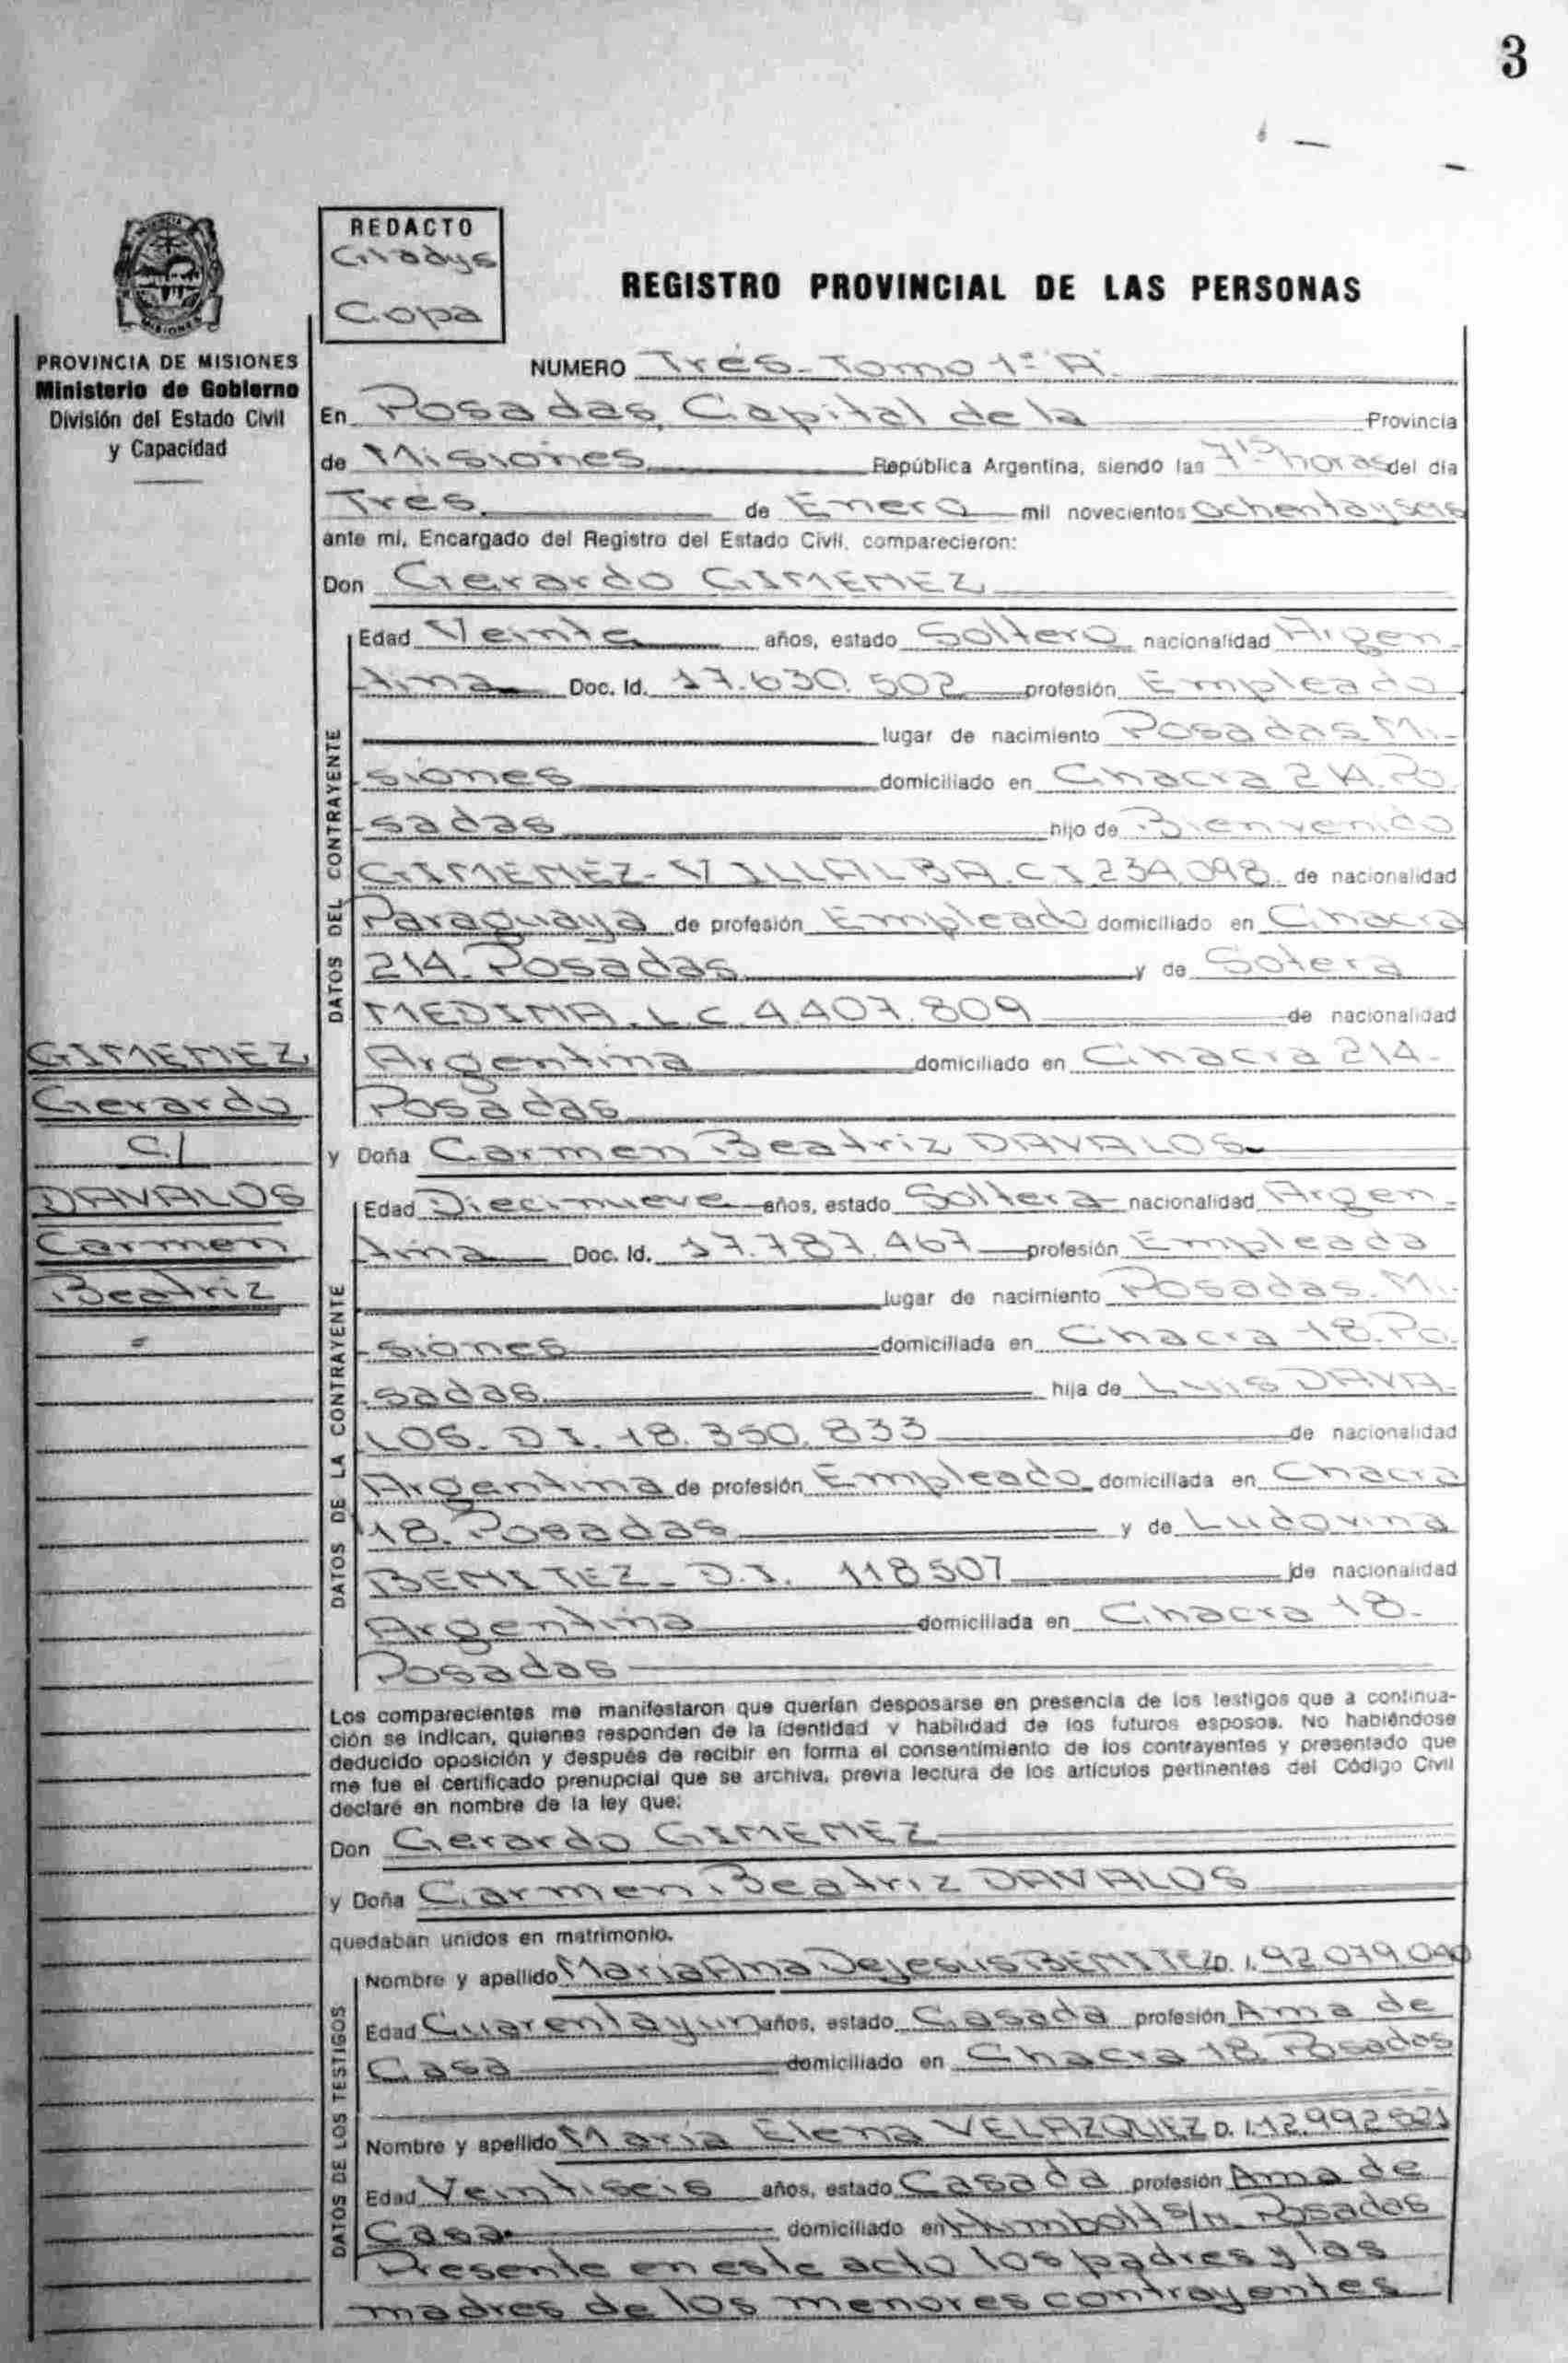 3
REDACTO
Gladys
Copa
REGISTRO PROVINCIAL DE LAS PERSONAS
PROVINCIA DE MISIONES
Ministerio de Gobierno
División del Estado Civil
y Capacidad
NUMERO Tres- Tomo 1º "A"
En Posadas, Capital de la Provincia
de Misiones República Argentina, siendo las horas del día
Tres de Enero mil novecientos ochenta y seis
ante mí, Encargado del Registro del Estado Civil, comparecieron:
Don Gerardo GIMENEZ
DATOS DEL CONTRAYENTE
Edad Veinte años, estado Soltero nacionalidad Argen-
tina Doc. Id. 17.630.502 profesión Empleado
lugar de nacimiento Posadas Mi-
siones domiciliado en Chacra 214. Po
sadas hijo de Bienvenido
GIMENEZ- VILLALBA. C I 234.098 de nacionalidad
Paraguaya de profesión Empleado domiciliado en Chacra
214. Posadas y de Sotera
MEDINA. L.C. 4.407.809 de nacionalidad
Argentina domiciliado en Chacra 214-
Posadas
GIMENEZ
Gerardo
C/
DAVALOS
Carmen
Beatriz
y Doña Carmen Beatriz DAVALOS
DATOS DE LA CONTRAYENTE
Edad Diecinueve años, estado Soltera nacionalidad Argen-
tina Doc. Id. 17.787.467 profesión Empleada
lugar de nacimiento Posadas. Mi-
siones domiciliada en Chacra 18. Po-
sadas hija de Luis DAVA-
LOS- D I. 18.350.833 de nacionalidad
Argentina de profesión Empleado domiciliada en Chacra
18. Posadas y de Ludovina
BENITEZ- D.I. 118507 de nacionalidad
Argentina domiciliada en Chacra 18-
Posadas
Los comparecientes me manifestaron que querían desposarse en presencia de los testigos que a continua-
ción se indican, quienes responden de la identidad y habilidad de los futuros esposos. No habiéndose
deducido oposición y después de recibir en forma el consentimiento de los contrayentes y presentado que
me fue el certificado prenupcial que se archiva, previa lectura de los artículos pertinentes del Código Civil
declaré en nombre de la ley que:
Don Gerardo GIMENEZ
y Doña Carmen Beatriz DAVALOS
quedaban unidos en matrimonio.
DATOS DE LOS TESTIGOS
Nombre y apellido María Ana Dejesús BENITEZ D. I. 92.079.040
Edad Cuarentayun años, estado Casada profesión Ama de
Casa domiciliado en Chacra 18 Posadas
Nombre y apellido María Elena VELAZQUEZ D. I. 12.992.521
Edad Veintiseis años, estado Casada profesión Ama de
Casa domiciliado en Humbolt s/n. Posadas
Presente en este acto los padres y las
madres de los menores contrayentes